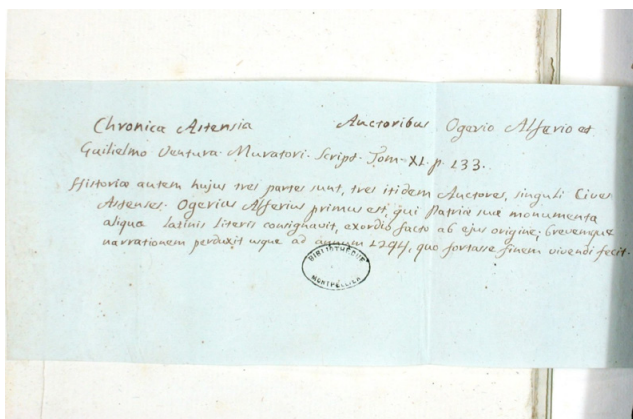 Chronica Astensia Auctoribus Ogerio Alferio et
Guilielmo Ventura. Muratori. Script. Tom. XI. p. 133.
Historiæ autem hujus tres partes sunt, tres itidem Auctores, singuli Cives
Astenses. Ogerius Alferius primus est, qui Patriæ suæ monumenta
aliqua Latinis literis consignavit, exordio facto ab ejus origine; brevemque
narrationem perduxit usque ad annum 1294, quo fortasse finem vivendi fecit.
BIBLIOTHEQUE
MONTPELLIER